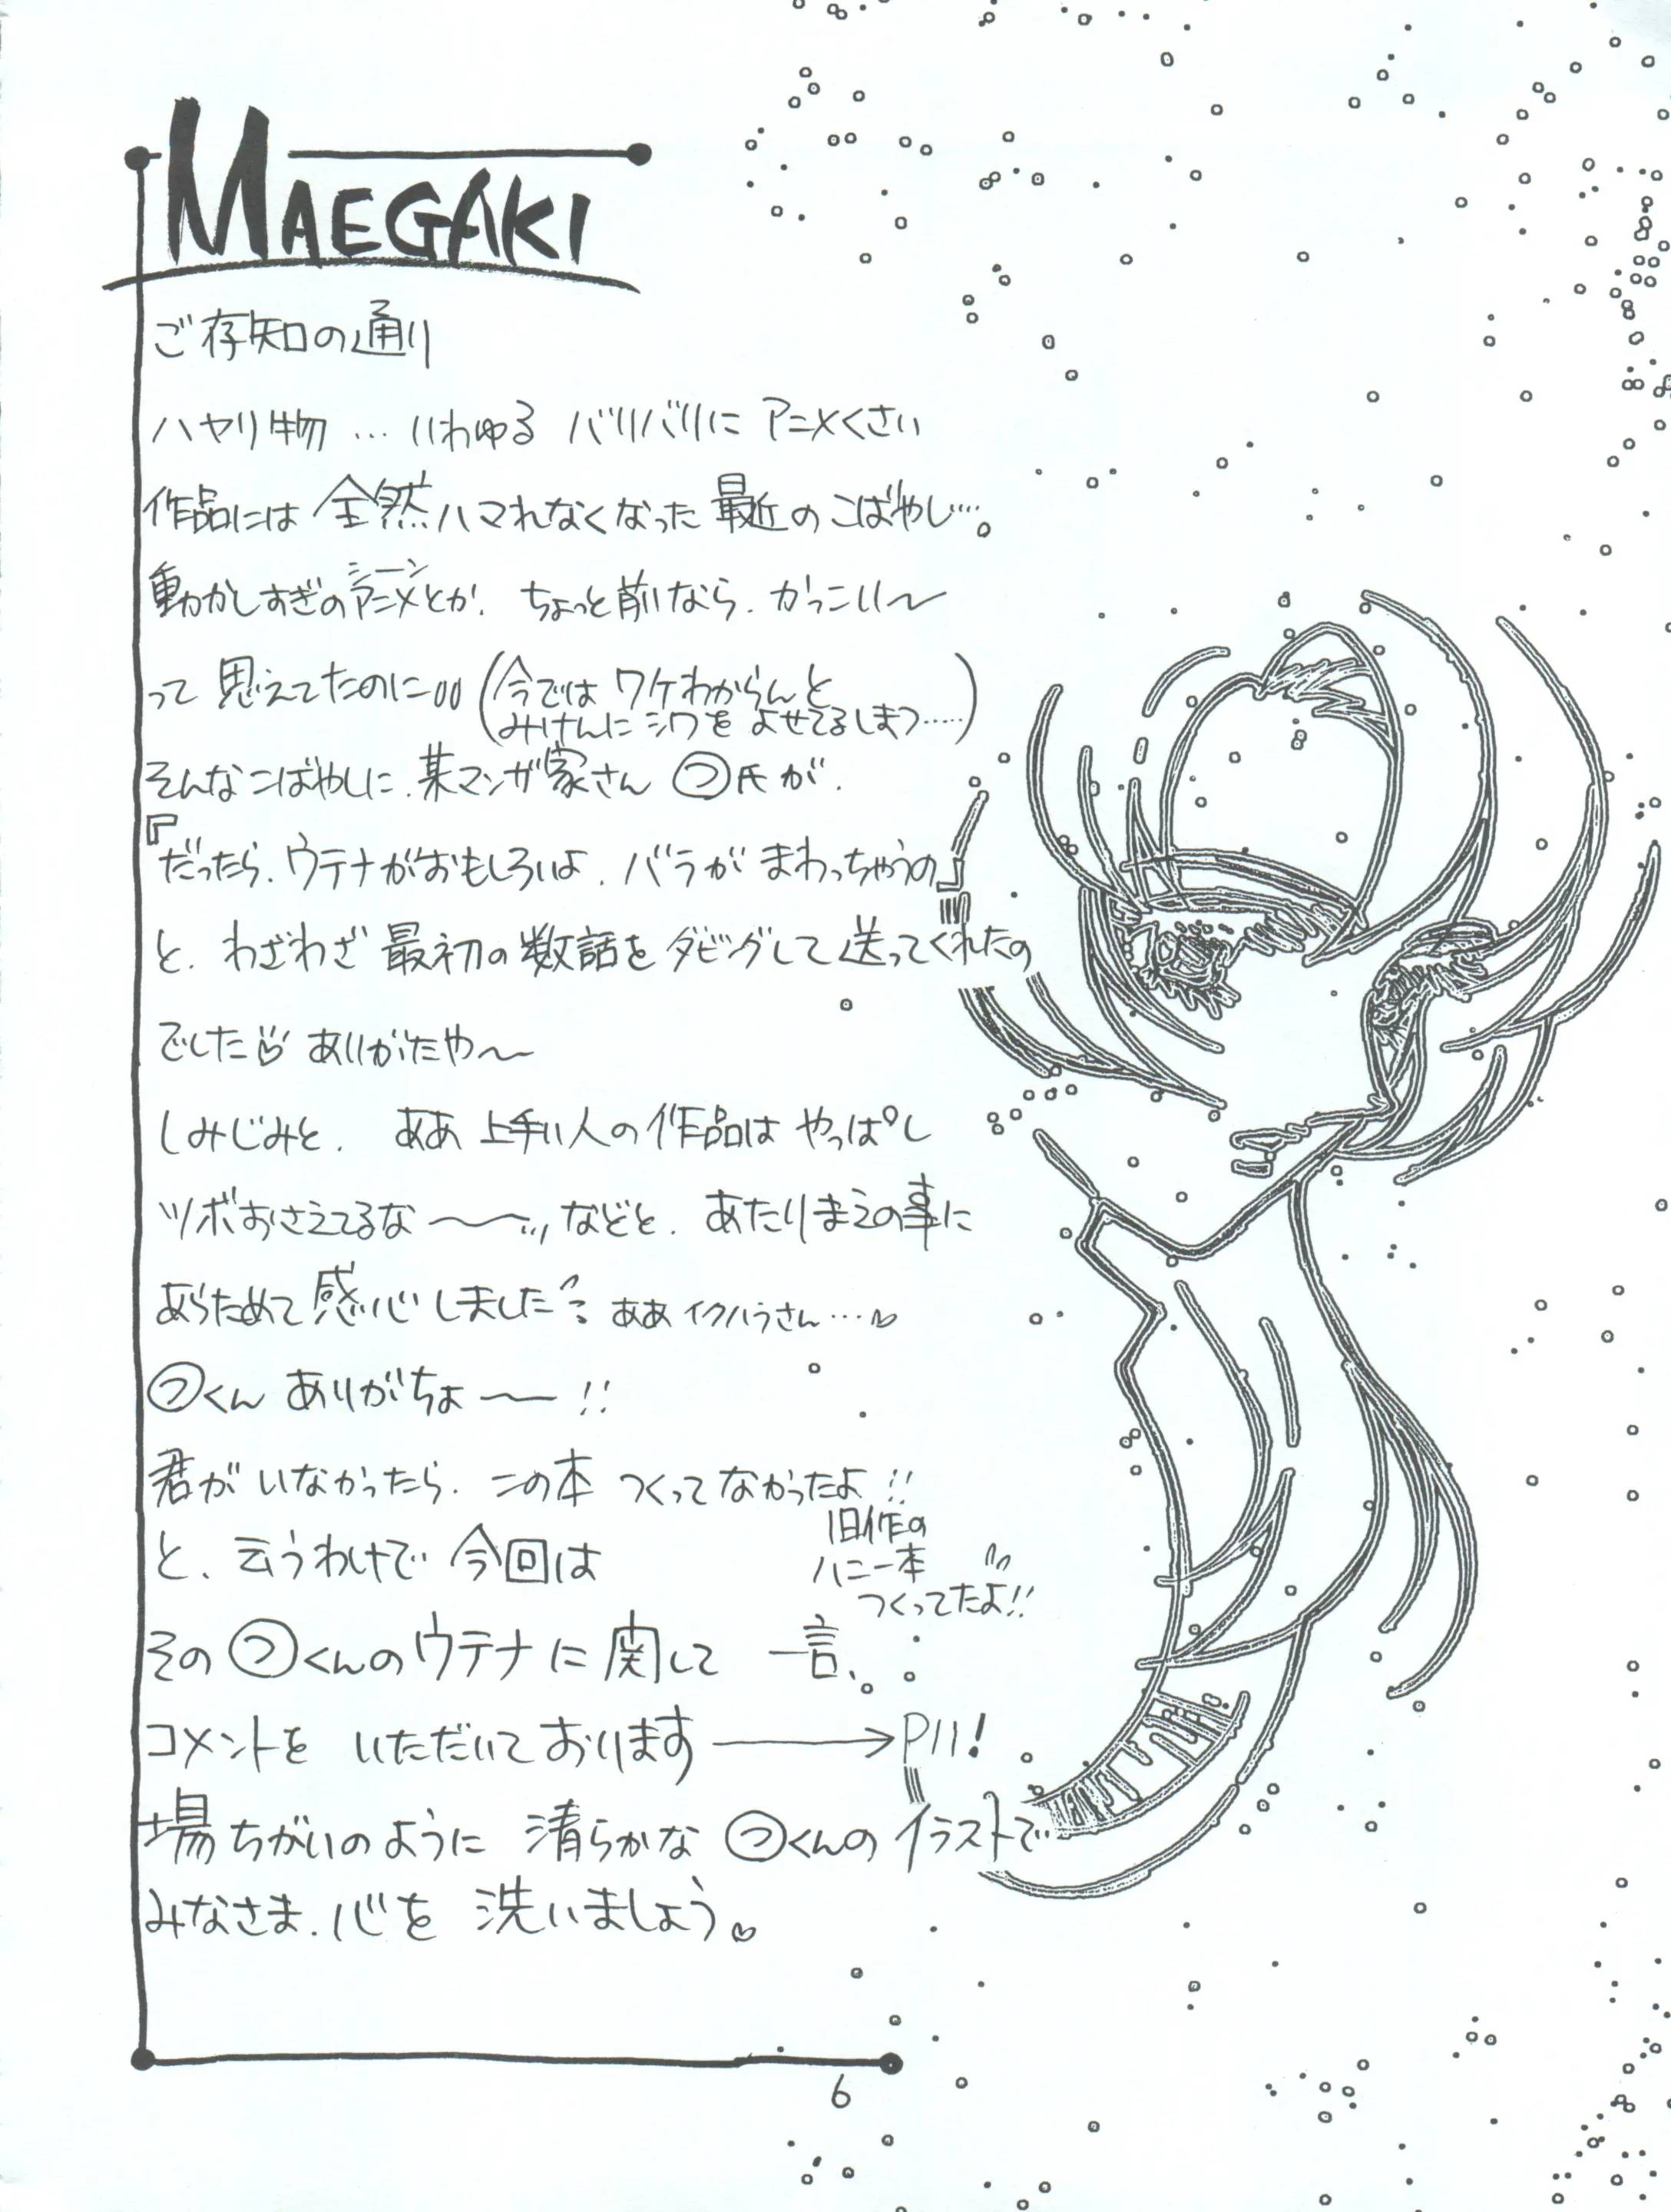 MAEGAKI
ご存知の通り
ハヤリ物…いわゆる バリバリに アニメくさい
作品には 全然ハマれなくなった 最近の こばやし…。
シーン
動かしすぎのアニメとか、ちょっと前なら、かっこいい〜
って 思えてたのに (今では ワケわからんと
みけんに シワを よせてるしまつ……)
そんなこばやしに、某マンガ家さん つ氏が、
『だったら、ウテナがおもしろいよ、バラが まわっちゃうの』
と、わざわざ 最初の数話を ダビングして 送ってくれたの
でした♡ ありがたや〜
しみじみと、 ああ 上手い人の 作品は やっぱし
ツボおさえてるな〜〜… などと、 あたりまえの事に
あらためて 感心しました ああ イクハラさん…♡
つくん ありがちょ〜!!
君が いなかったら、この本 つくってなかったよ!!
旧作の
ハニー本
つくってたよ!!
と、云うわけで 今回は
そのつくんのウテナに 関して 一言、
コメントを いただいております→P11!
場ちがいのように 清らかな つくんの イラストで
みなさま、心を 洗いましょう♡
6